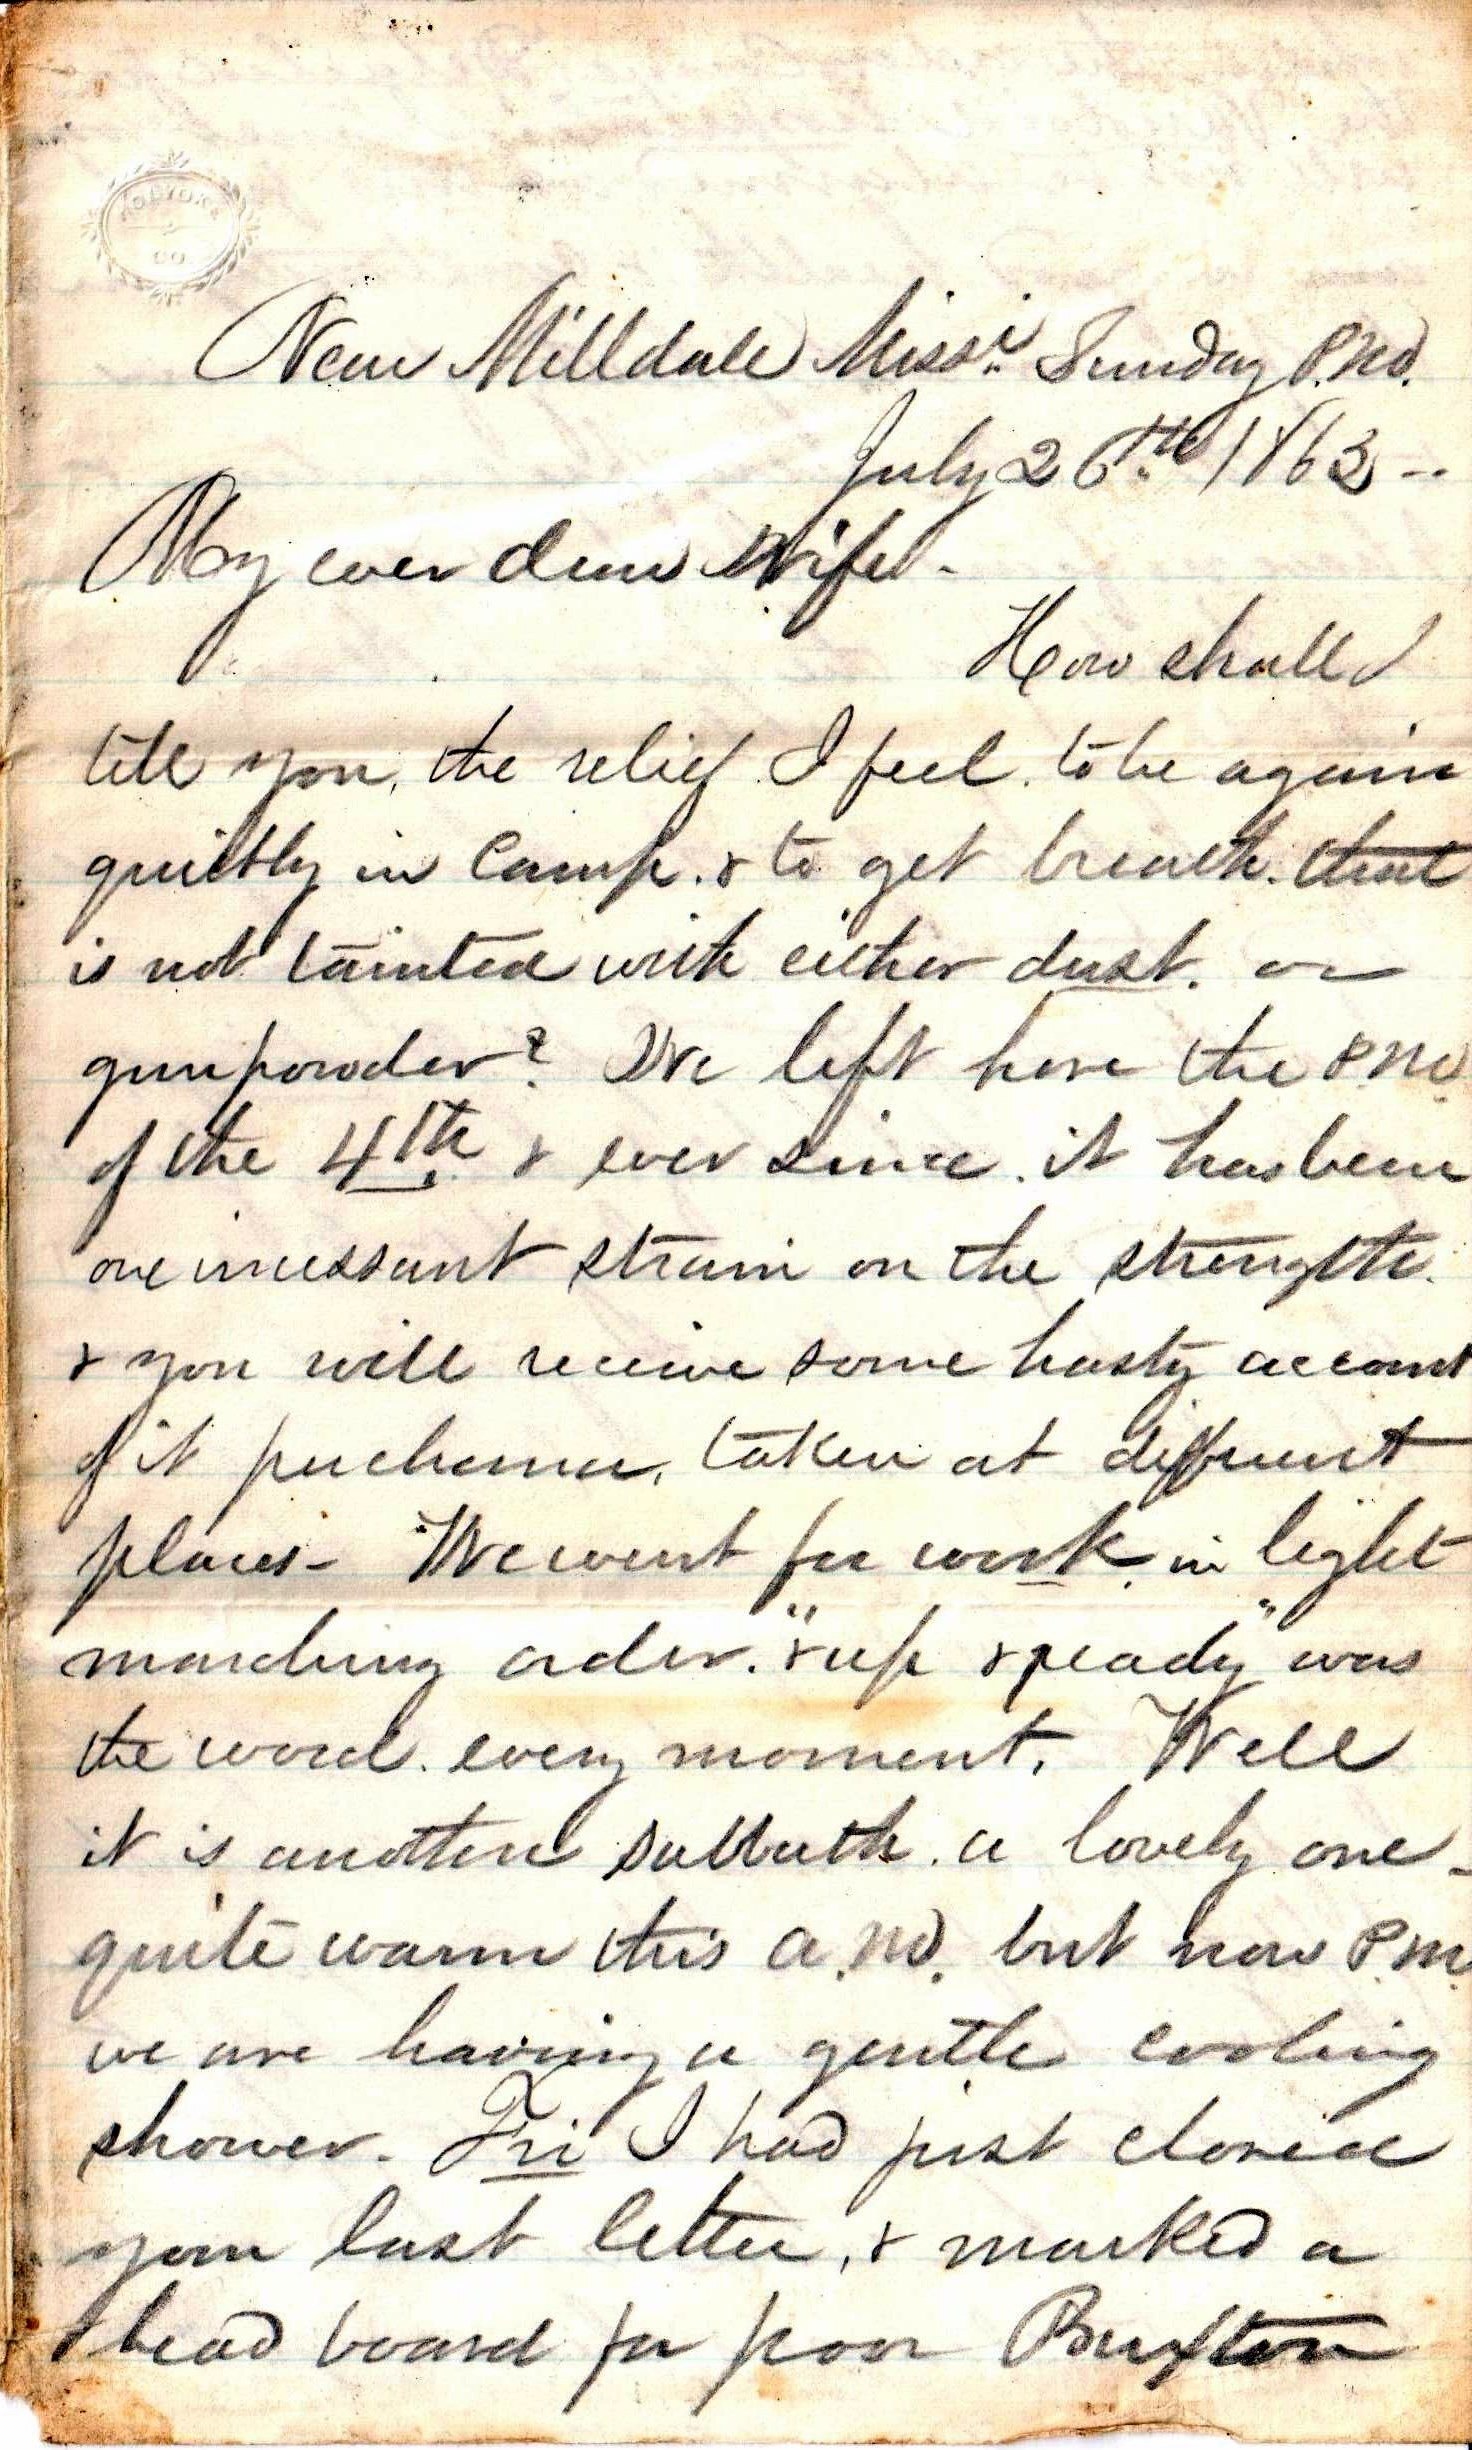 HOLYOKE
CO
Near Milldale Missi. Sunday P.M.
July 26th 1863 -
My ever dear Wife -
How shall I
tell you, the relief I feel. to be again
quietly in Camp. & to get breath. that
is not tainted with either dust. or
gunpowder? We left here the P.M.
of the 4th. & ever since. it has been
one incessant strain on the strength.
& you will receive some hasty account
of it perchance, taken at different
places - We went for work. in light
marching order. "& up & ready" was
the word. every moment. Well
it is another Sabbath. a lovely one -
quite warm this A.M. but now P.M.
we are having a gentle cooling
shower. Fri I had just closed
your last letter, & marked a
head board for poor Buxton